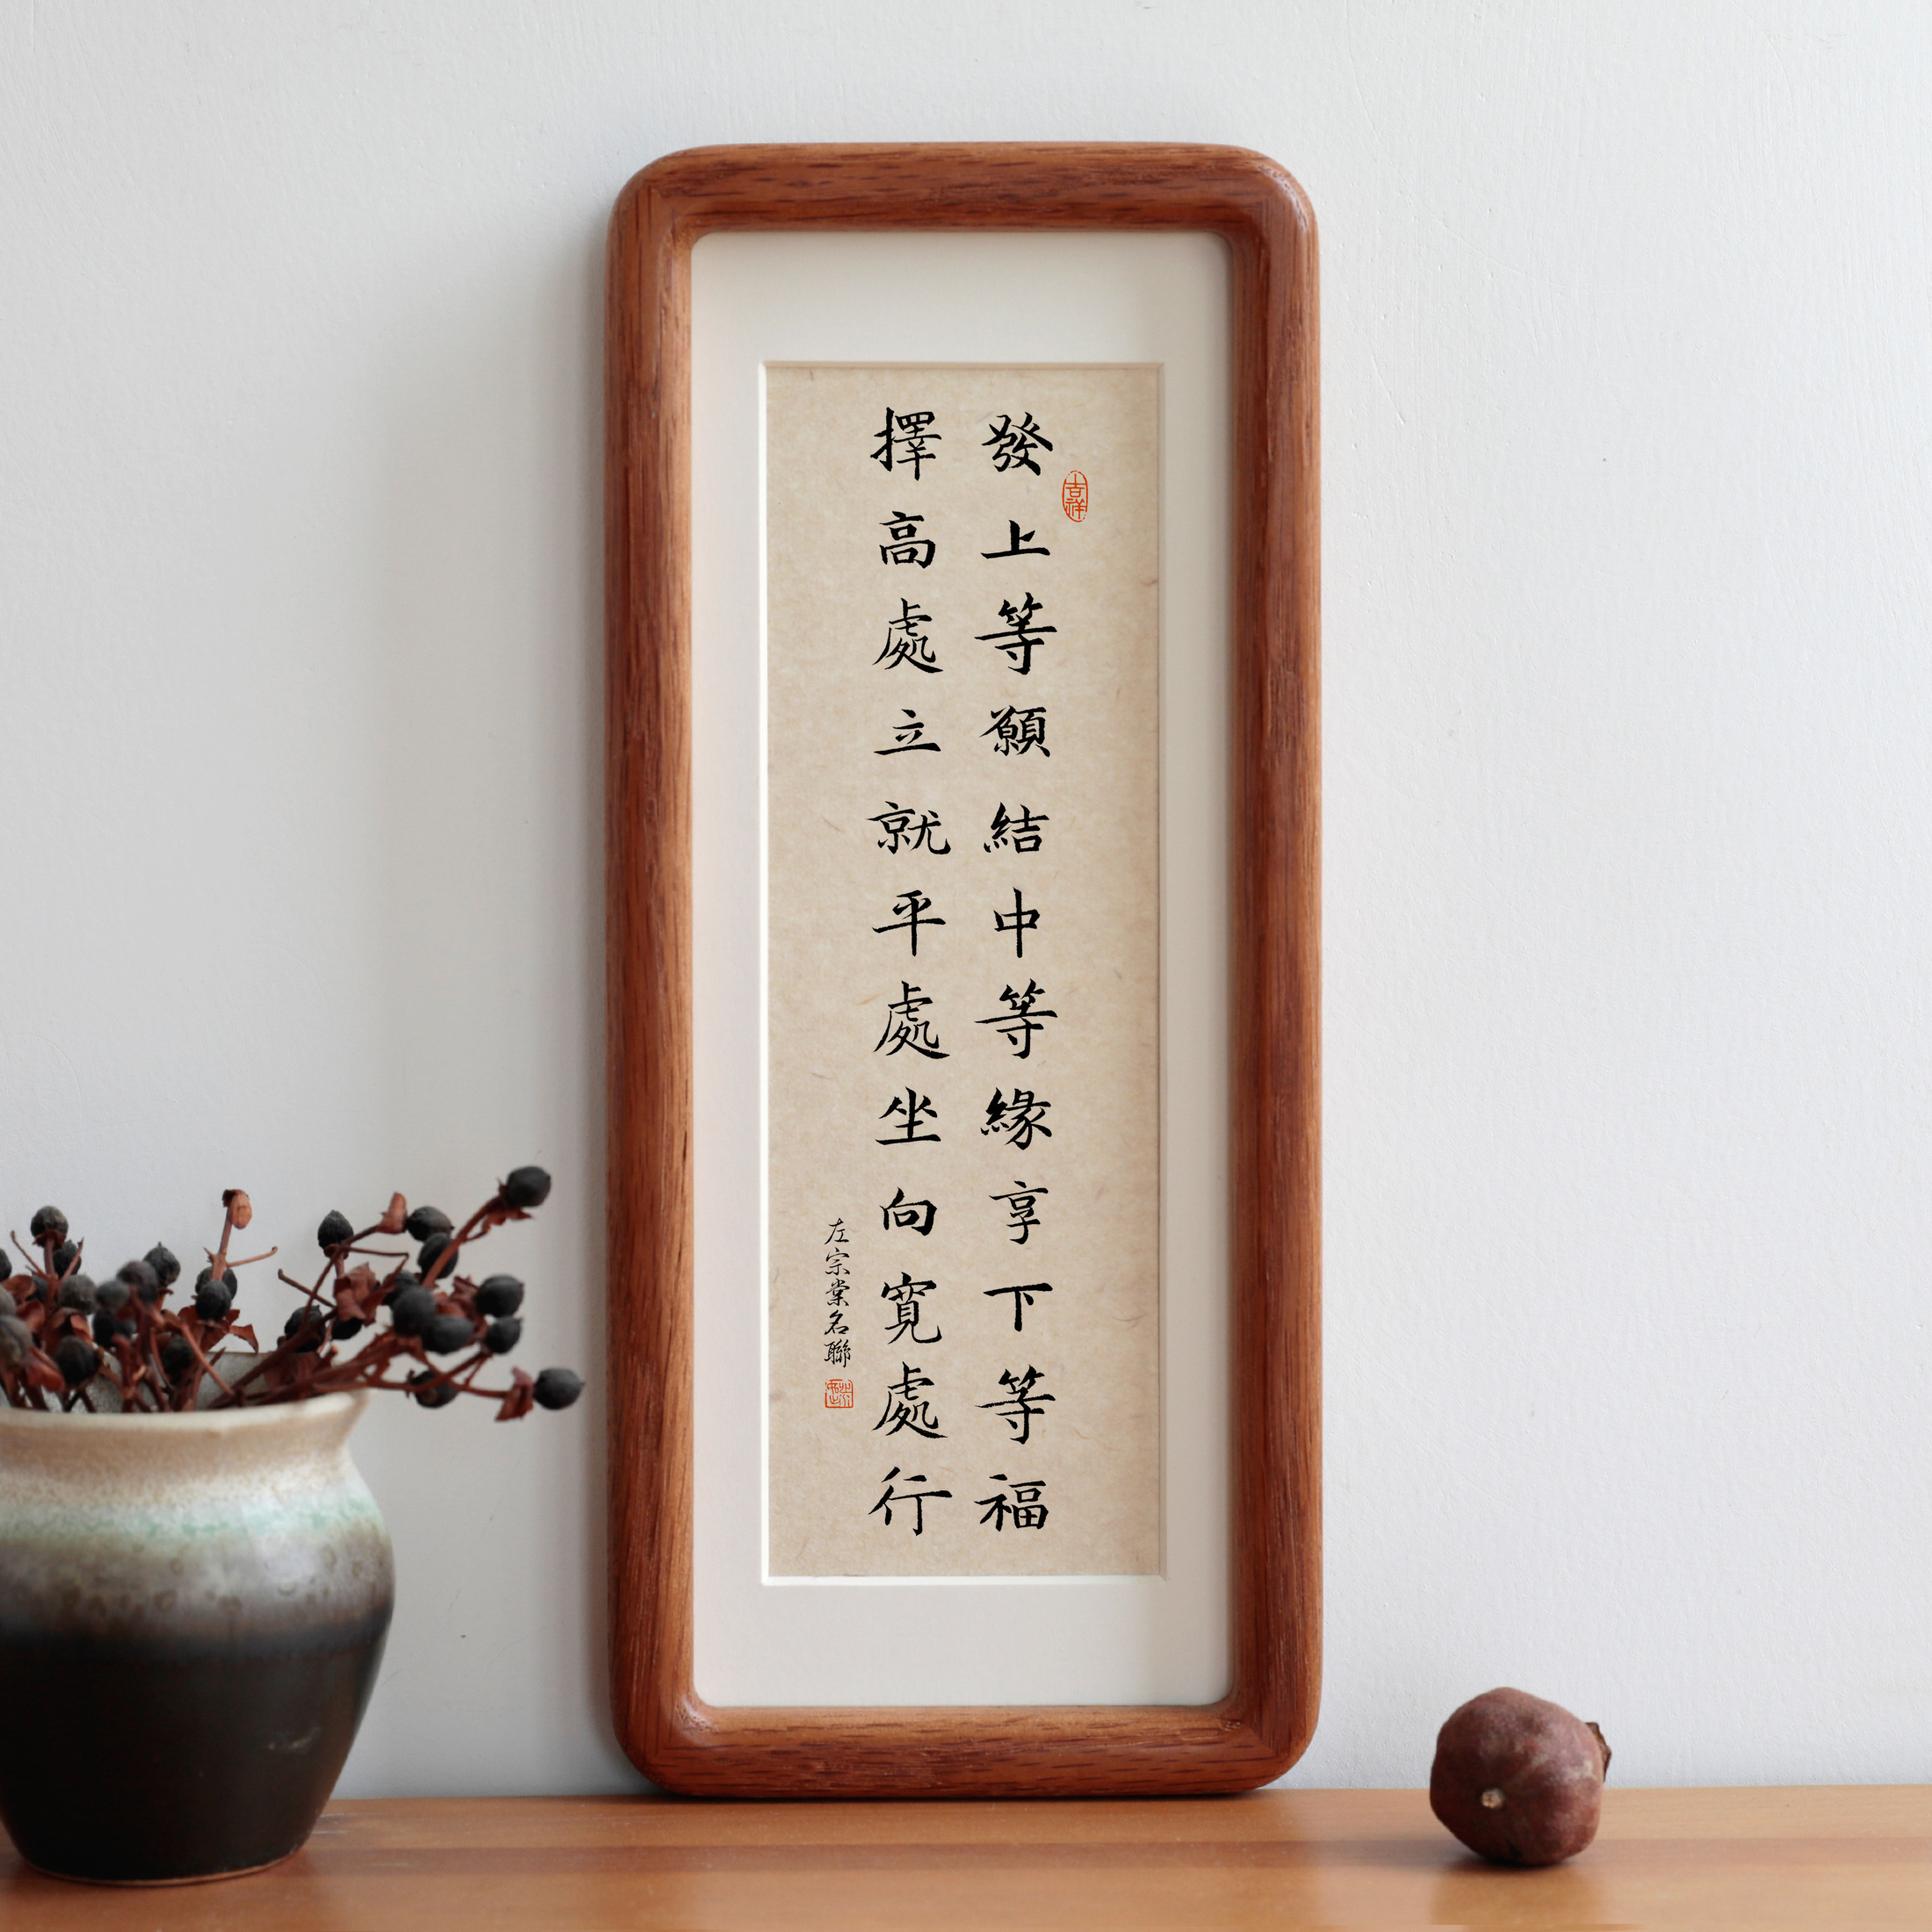 發上等願結中等緣享下等福
擇高處立就平處坐向寬處行
左宗棠名聯
吉祥